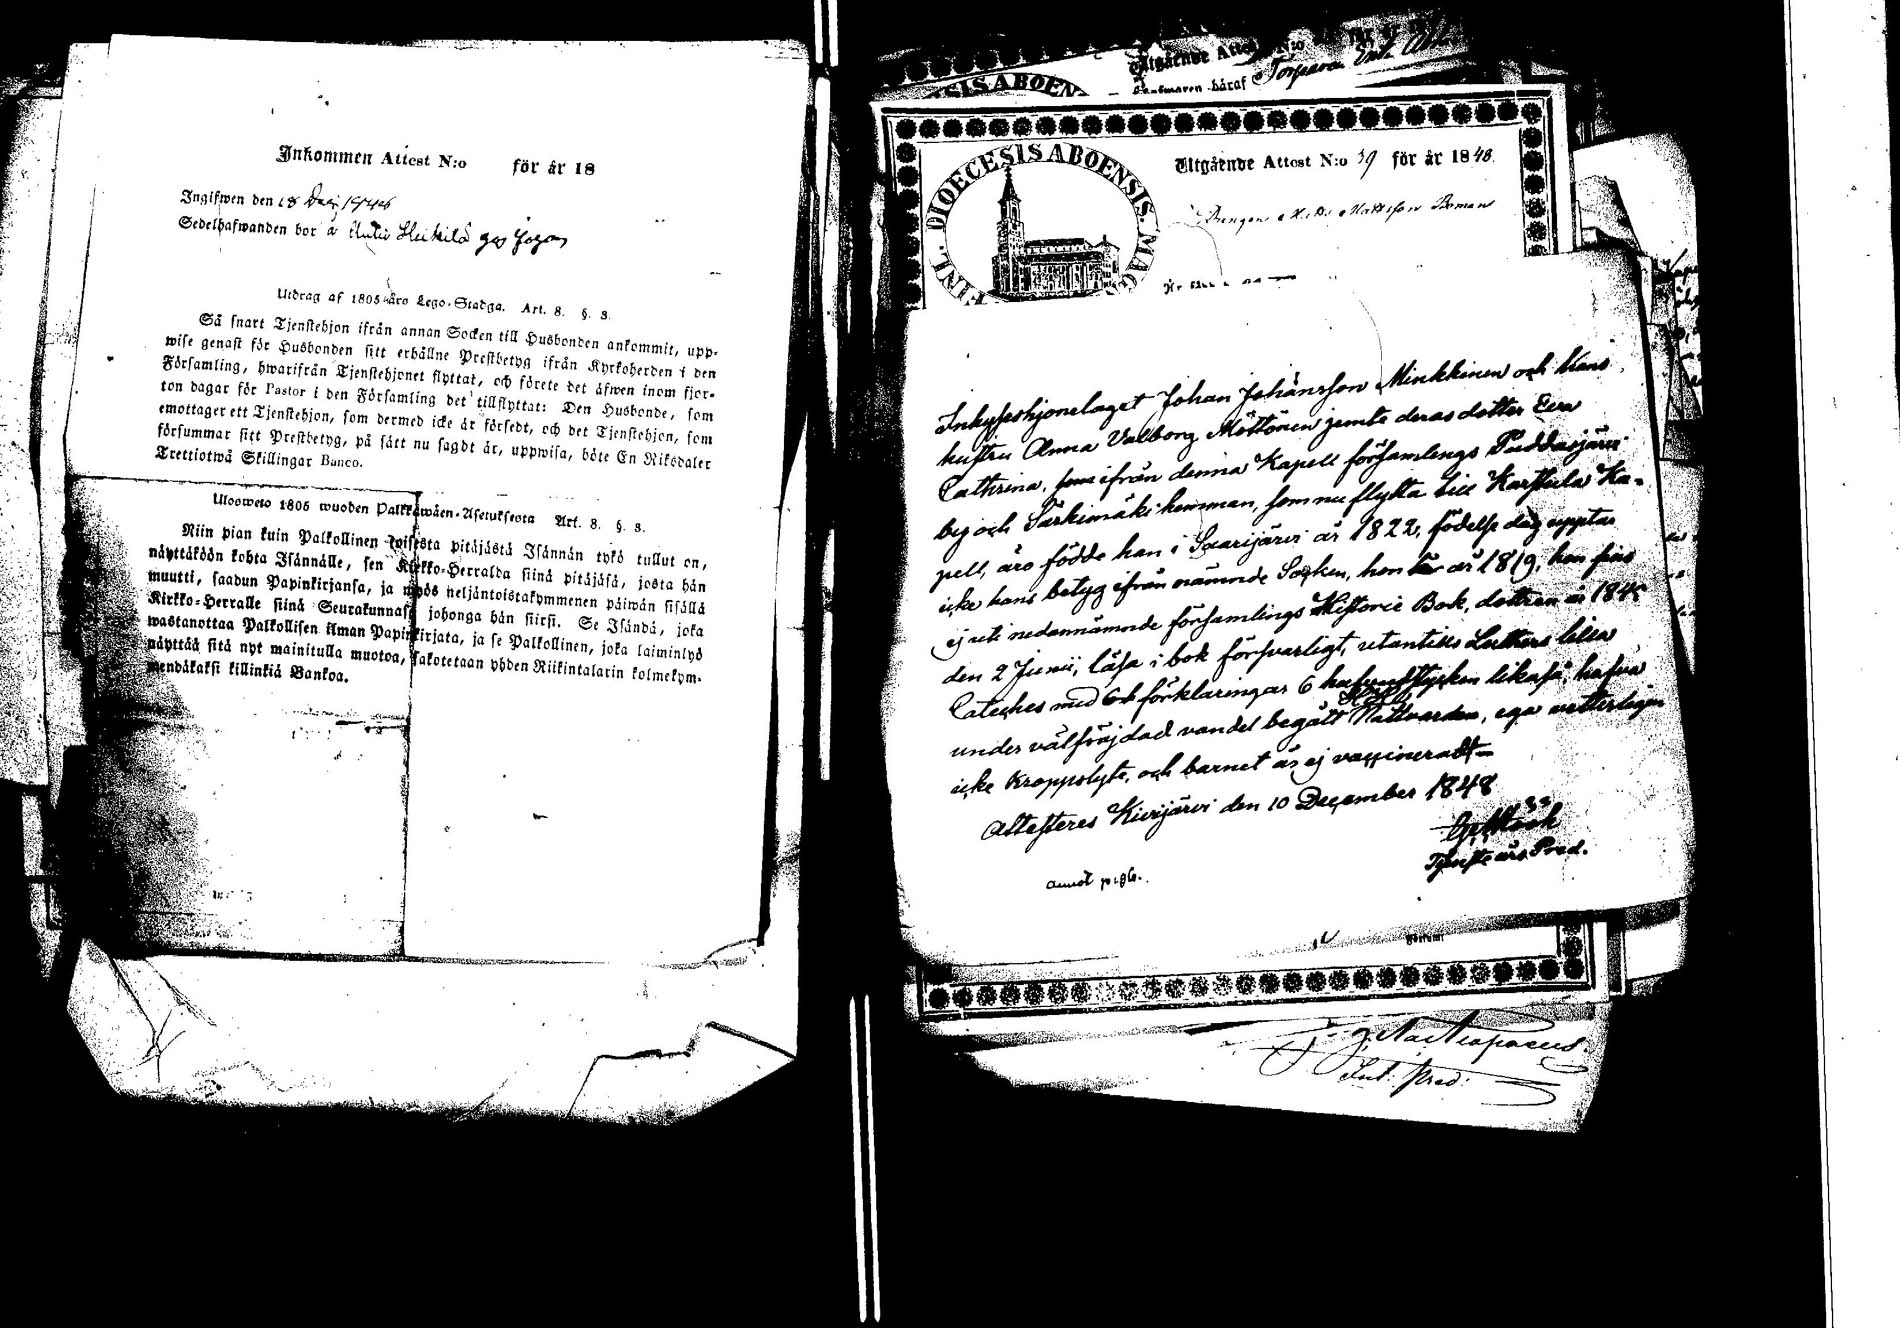 Inkommen Attest N:o för år 18
Ingifwen den 18
Sedelhafwanden bor å Heikilä
Utdrag af 1805 års Lego-Stadga. Art. 8. §. 3.
Så snart Tjenstehjon ifrån annan Socken till Husbonden ankommit, upp-
wise genast för Husbonden sitt erhållne Prestbetyg ifrån Kyrkoherden i den
Församling, hwarifrån Tjenstehjonet flyttat, och förete det äfwen inom fjor-
ton dagar för Pastor i den Församling det tillflyttat: Den Husbonde, som
emottager ett Tjenstehjon, som dermed icke är försedt, och det Tjenstehjon, som
försummar sitt Prestbetyg, på sätt nu sagdt är, uppwisa, böte En Riksdaler
Trettiotwå Skillingar Banco.
Ulosweto 1805 wuoden Palkkawäen-Asetuksesta Art. 8. §. 3.
Niin pian kuin Palkollinen toisesta pitäjästä Isännän tykö tullut on,
näyttäköön kohta Isännälle, sen Kirkko-Herralda siinä pitäjäsä, josta hän
muutti, saadun Papinkirjansa, ja myös neljäntoistakymmenen päiwän sisällä
Kirkko-Herralle siinä Seurakunnasa johonga hän siirsi. Se Isändä, joka
wastanottaa Palkollisen ilman Papinkirjata, ja se Palkollinen, joka laiminlyö
näyttää sitä nyt mainitulla muotoa, sakotetaan yhden Riikintalarin kolmekym-
mendäkaksi killinkiä Bankoa.
Utgående Attest N:o för år
häraf Torparen Erik
DIOECESIS ABOENSIS. MAG FINL.
Utgående Attest N:o 39 för år 1848.
Drengen Matts Mattsson Boman
Inhyseshjonelaget Johan Johansson Minkkinen och hans
hustru Anna Valborg Möttönen jemte deras dotter Eva
Cathrina, som ifrån denna Kapell församlings Puddasjärvi
by och Särkimäki hemman, som nu flytta till Karstula Ka-
pell, äro födde han i Saarijärvi år 1822, födelse dag upptar
icke hans betyg ifrån nämnde Socken, hon år 1819, hon fins
ej uti nedannämnde församlings Historie Bok, dottren år 1845
den 2 Junii, läsa i bok försvarligt, utantill Luthers lilla
Cateches med och förklaringar 6 hufvudstycken likaså, hafva
under välfräjdad vandel begått Nattvarden, ega vetterligen
icke kroppslyte, och barnet är ej vaccineradt
Attesteras Kivijärvi den 10 December 1848
Pred.
annot p 196.
Pred: